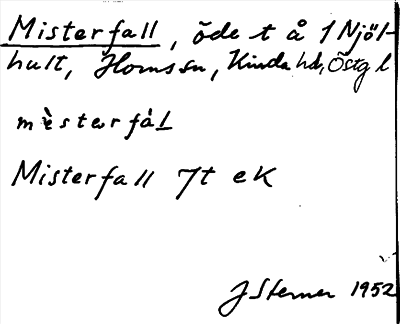 Misterfall, öde t å 1 Njöl-
hult, Horns sn, Kinda hd, Östg l
mèsterfàL
Misterfall 7t eK
J Sterner 1952